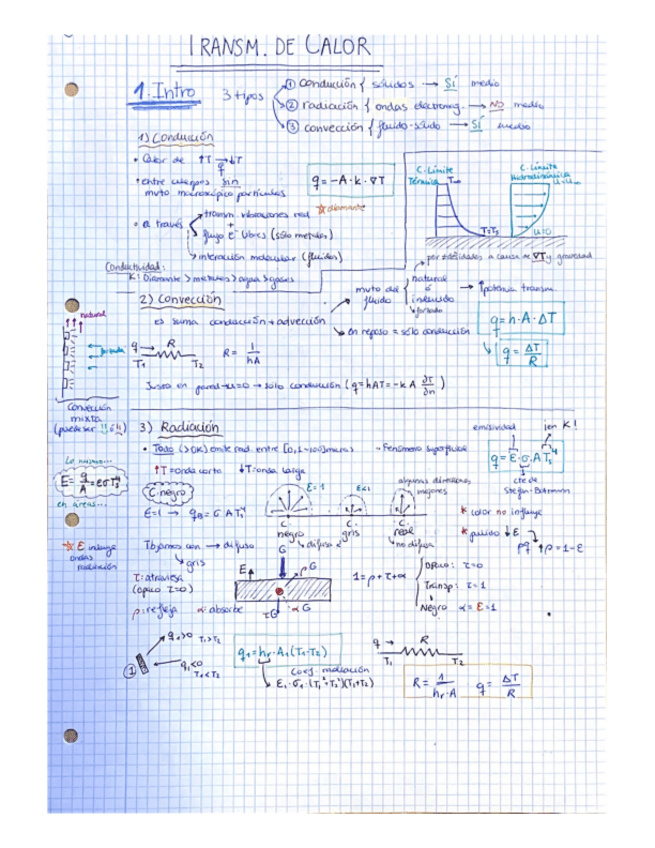 TRANSM. DE CALOR
1. Intro
3 tipos
① conducción { sólidos → Sí medio
② radiación { ondas electromag. → NO medio
③ convección { fluido-sólido → Sí medio
1) Conducción
• Calor de ↑T → ↓T
q
• entre cuerpos sin
mvto macroscópico partículas
q = -A · k · ∇T
• a través
transm. vibraciones red
☆ diamante
+
flujo e⁻ libres (sólo metales)
interacción molecular (fluidos)
Conductividad:
K: Diamante > metales > agua > gases
C. Límite
Térmica
T∞
C. Límite
Hidrodinámica
u=u∞
T=Ts
u=0
2) Convección
es suma conducción + advección
mvto del
fluido
natural
ó
inducido
por densidades a causa de ∇T y gravedad
forzado
→ ↑potencia transm.
en reposo = sólo conducción
q = h · A · ΔT
q = ΔT/R
q → R
T₁ T₂
R = 1/hA
Justo en pared → u=0 → sólo conducción (q = hAT = -k A ∂T/∂n)
natural
forzada
Convección
mixta
(puede ser ↑↓ ó ↓↓)
3) Radiación
• Todo (>0K) emite rad. entre [0,1-100] micras
- Fenómeno superficial
↑T = onda corta ↓T = onda larga
emisividad
¡en K!
q = ε · σ · A Ts⁴
cte de
Stefan-Boltzmann
Lo mismo...
E = q/A = εσTs⁴
en áreas...
C. negro
ε=1 → qB = σ A Ts⁴
ε=1
ε<1
algunas direcciones
mejores
C.
negro
difusa
C.
gris
C.
real
no difusa
* color no influye
* pulido ↓ε
pq ↑ρ = 1-ε
☆ E incluye
ondas
radiación
Tbjamos con → difusa
gris
τ: atraviesa
(opaco τ=0)
ρ: refleja α: absorbe
G
E
ρG
αG
τG
1 = ρ + τ + α
Opaco: τ=0
Transp: τ=1
Negro α=ε=1
①
q₁>0 T₁>T₂
q₁<0
T₁<T₂
q₁ = hr · A₁ (T₁-T₂)
Coef. radiación
ε₁ · σ₁ · (T₁²+T₂²)(T₁+T₂)
q → R
T₁ T₂
R = 1/hr·A q = ΔT/R